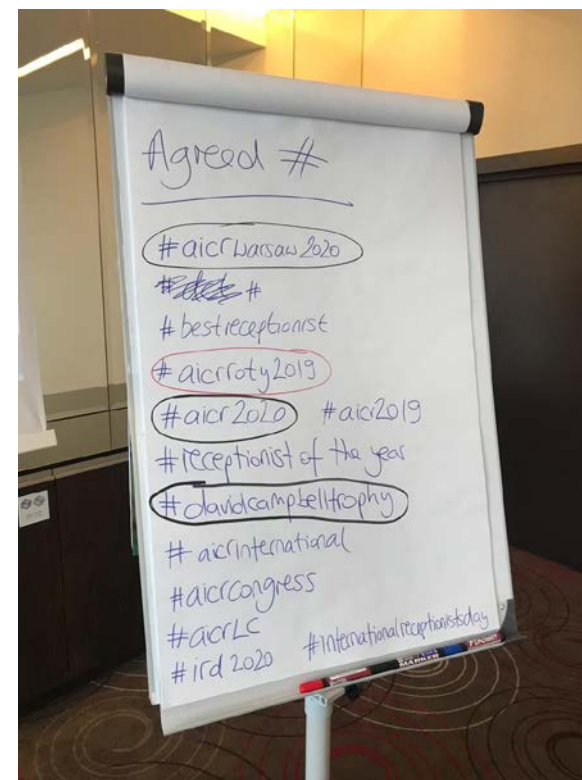 Agreed #
#aicrwarsaw2020
#
#bestreceptionist
#aicrroty2019
#aicr2020 #aicr2019
#receptionist of the year
#davidcampbelltrophy
#aicrinternational
#aicrcongress
#aicrLC
#ird2020 #Internationalreceptionistsday
MARKER